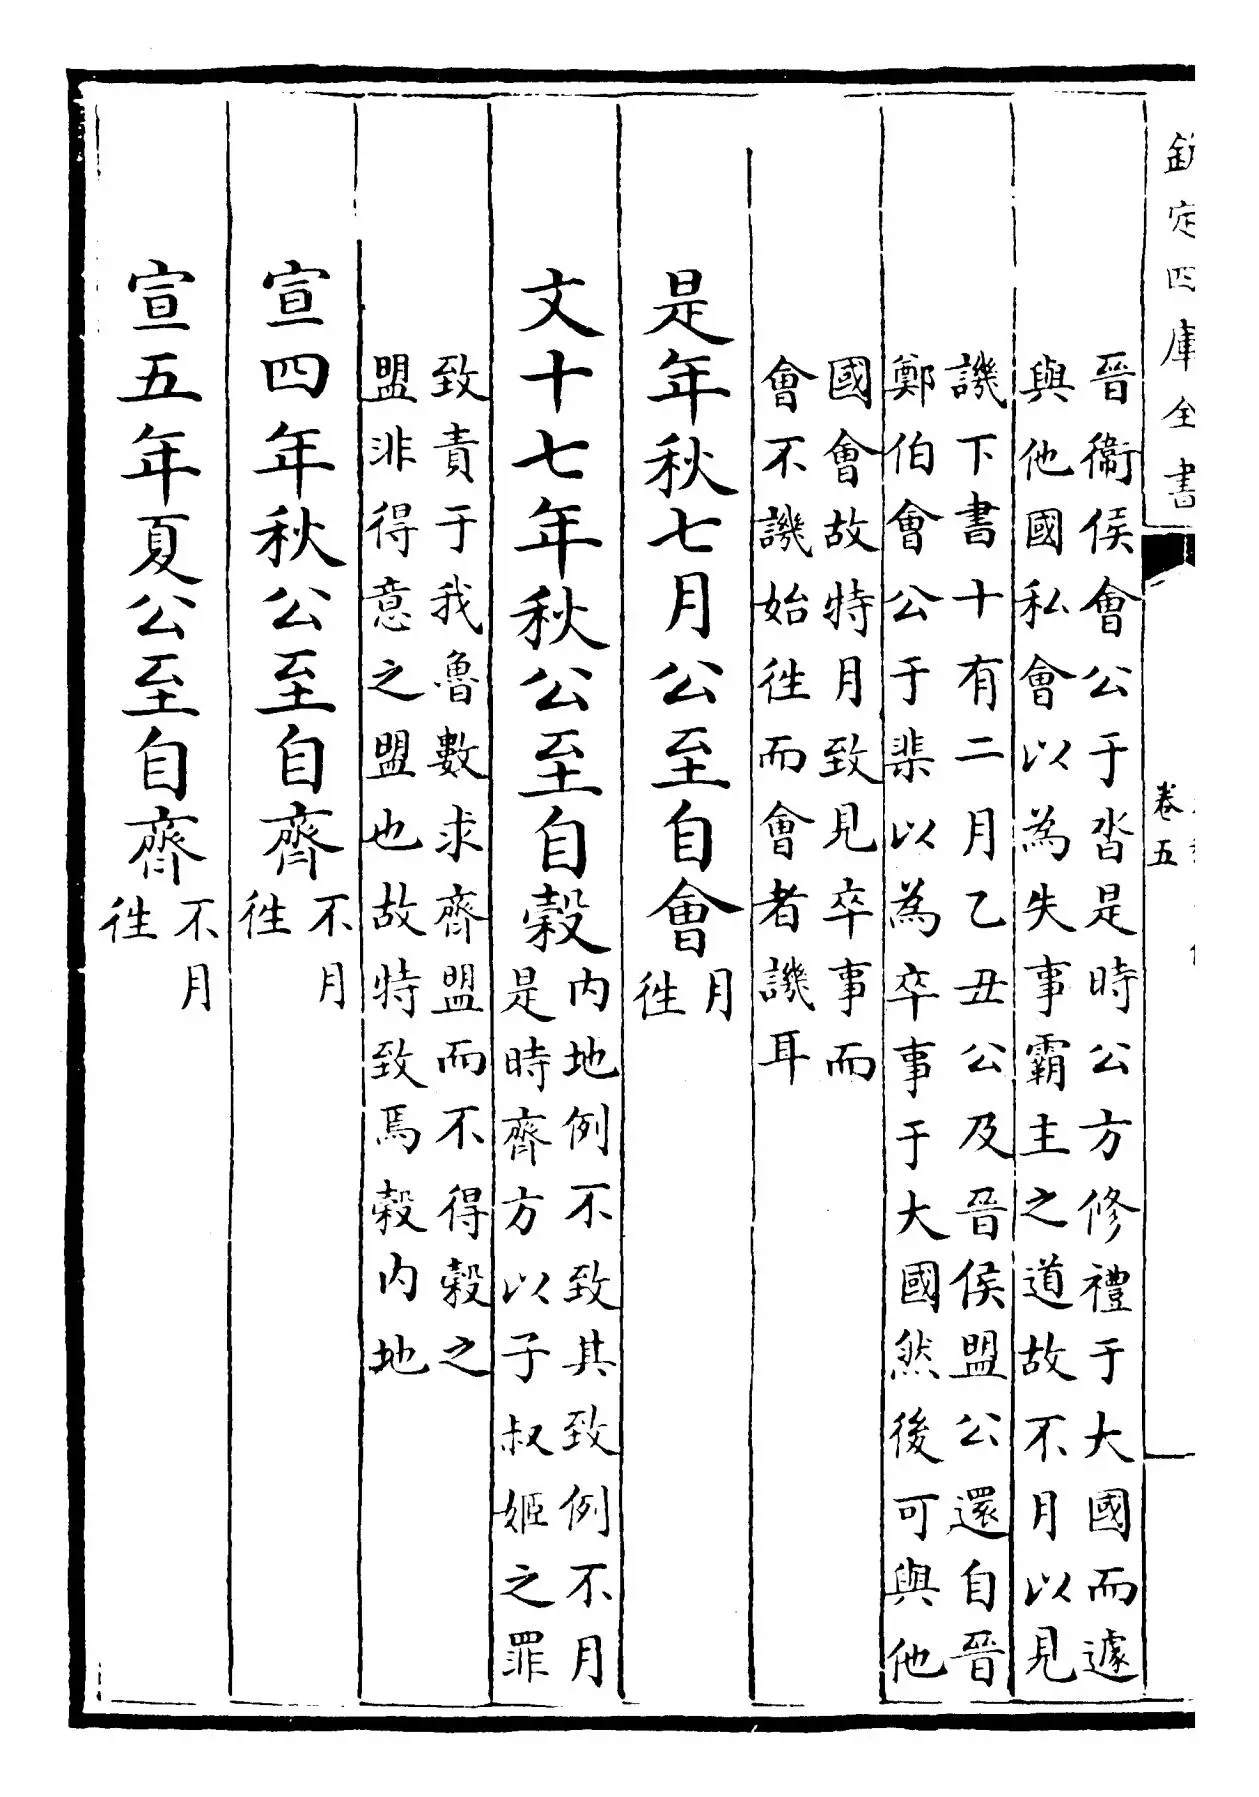 欽定四庫全書
卷五
晉衞侯會公于沓是時公方修禮于大國而遽
與他國私會以為失事霸主之道故不月以見
譏下書十有二月乙丑公及晉侯盟公還自晉
鄭伯會公于棐以為卒事于大國然後可與他
國會故特月致見卒事而
會不譏始徃而會者譏耳
是年秋七月公至自會月
徃
文十七年秋公至自穀内地例不致其致例不月
是時齊方以子叔姬之罪
致責于我魯數求齊盟而不得穀之
盟非得意之盟也故特致焉穀内地
宣四年秋公至自齊不月
徃
宣五年夏公至自齊不月
徃